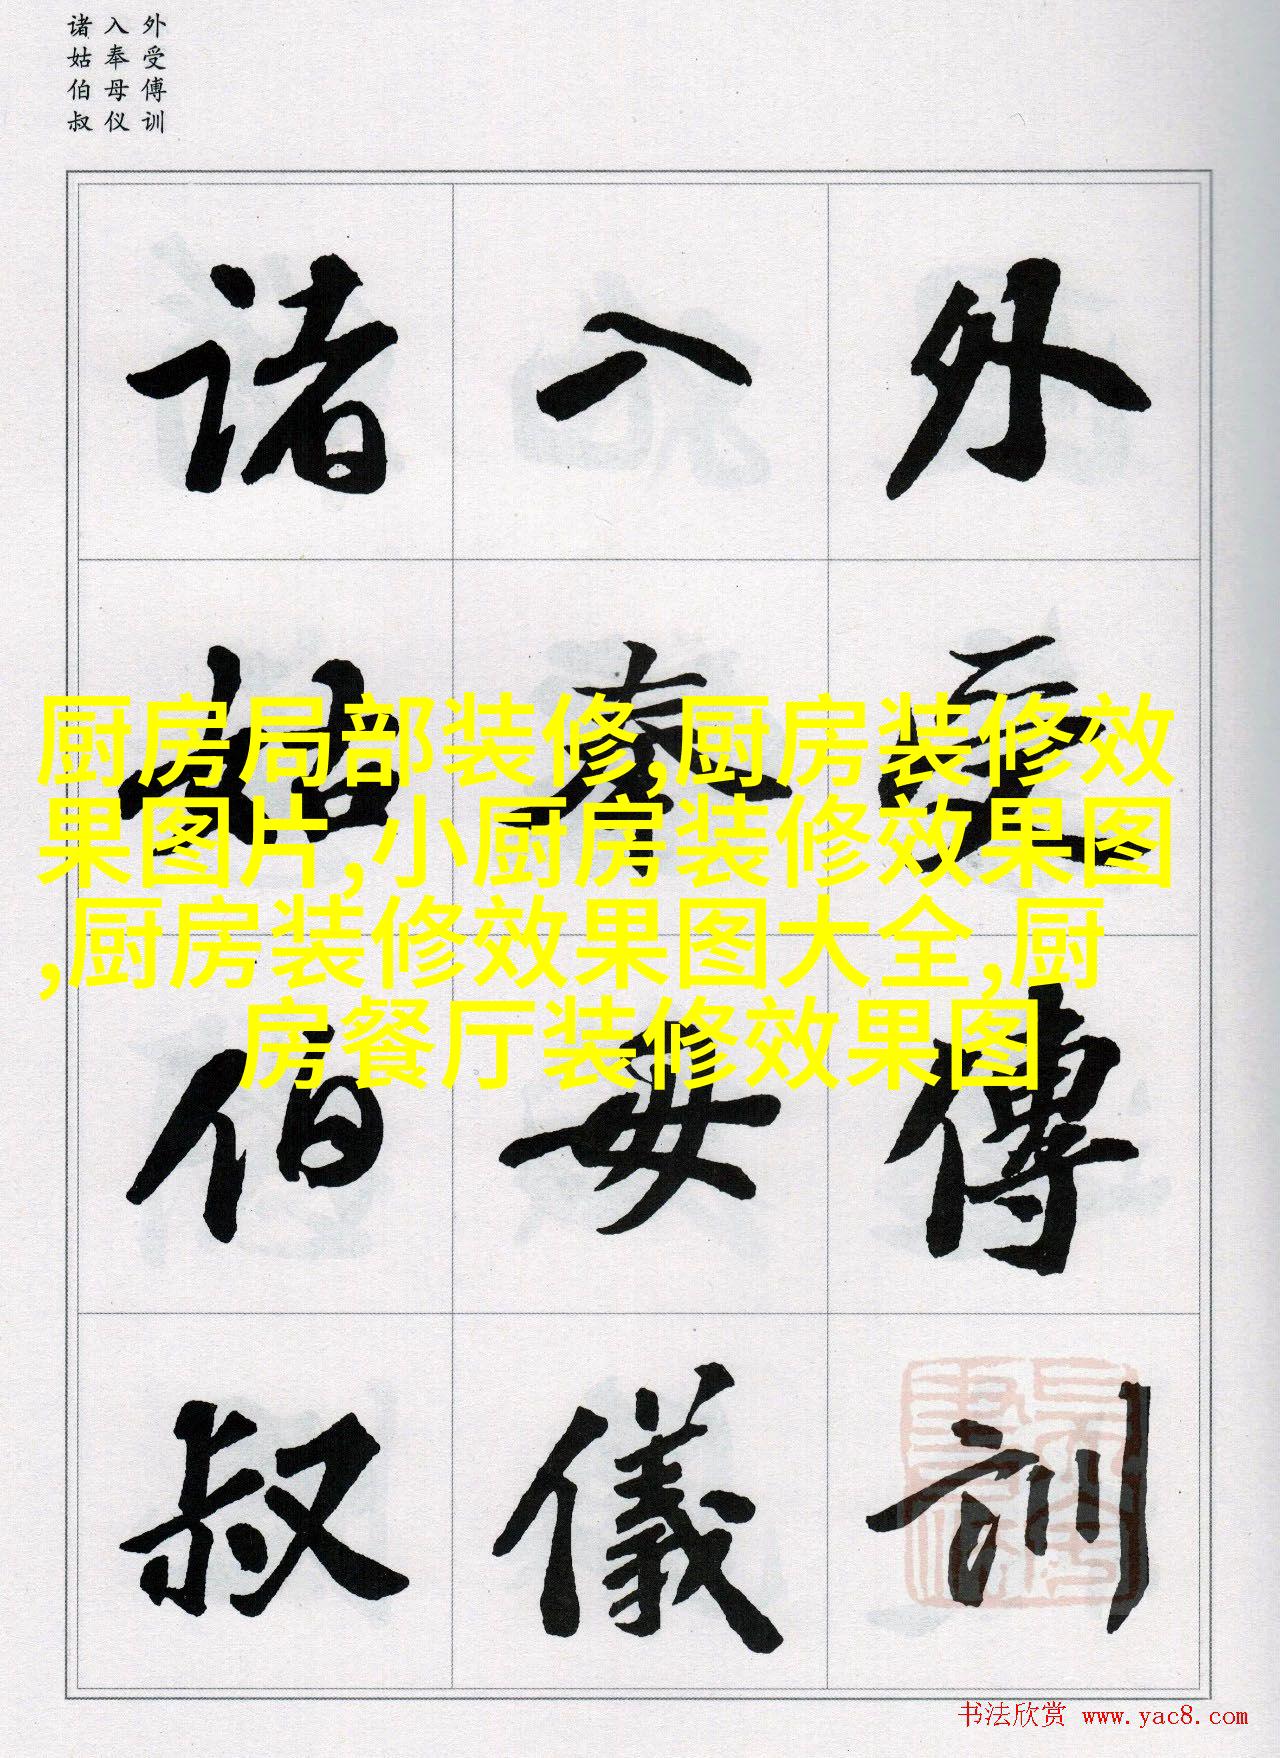 外受傅训
入奉母仪
诸姑伯叔
外受傅訓
入奉母儀
诸姑伯叔
厨房局部装修,厨房装修效
果图片,小厨房装修效果图
,厨房装修效果图大全,厨
房餐厅装修效果图
书法欣赏 www.yac8.com